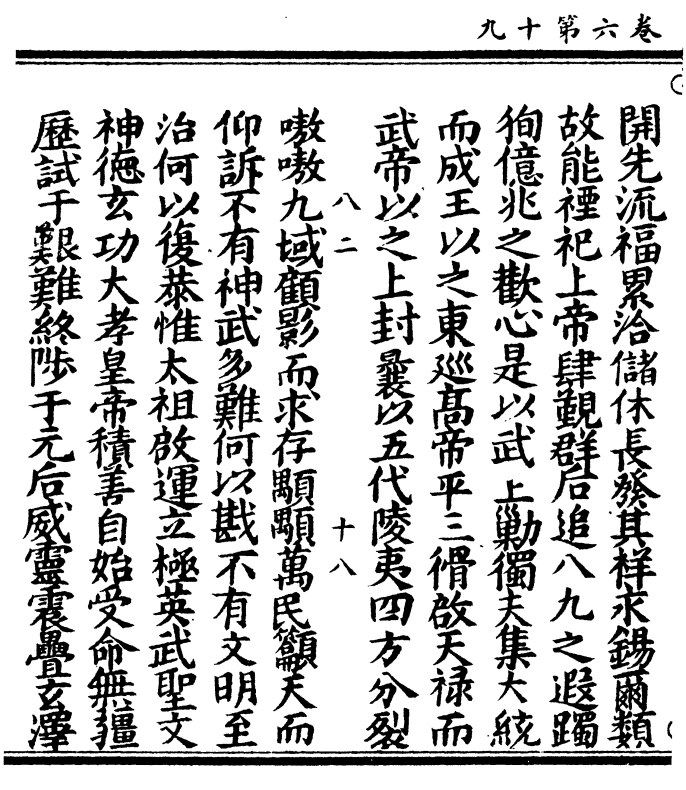 卷六第十九
開先流福累洽儲休長發其祥永錫爾類
故能禋祀上帝肆覲群后追八九之遐躅
徇億兆之歡心是以武上勦獨夫集大統
而成王以之東巡高帝平三猾啟天祿而
武帝以之上封曩以五代陵夷四方分裂
八二 十八
嗷嗷九域顧影而求存顒顒萬民籲天而
仰訴不有神武多難何以戡不有文明至
治何以復恭惟太祖啟運立極英武聖文
神德玄功大孝皇帝積善自始受命無疆
歷試于艱難終陟于元后威靈震疊玄澤